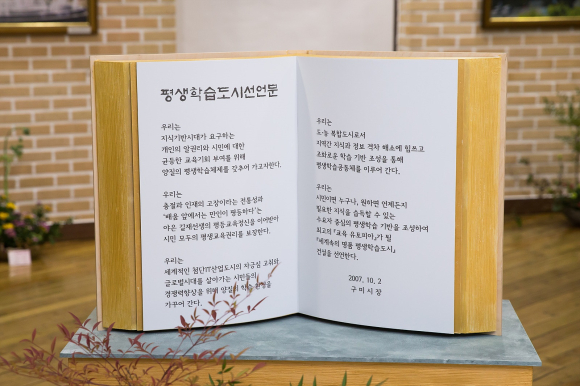 평생학습도시선언문
우리는
지식기반시대가 요구하는
개인의 알권리와 시민에 대한
균등한 교육기회 부여를 위해
양질의 평생학습체제를 갖추어 가고자한다.
우리는
충절과 인재의 고장이라는 전통성과
'배움 앞에서는 만인이 평등하다'는
야은 길재선생의 평등교육정신을 이어받아
시민 모두의 평생교육권리를 보장한다.
우리는
세계적인 첨단IT산업도시의 자긍심 고취와
글로벌시대를 살아가는 시민들의
경쟁력향상을 위해 양질의 학습 환경을
가꾸어 간다.
우리는
도·농 복합도시로서
지역간 지식과 정보 격차 해소에 힘쓰고
조화로운 학습 기반 조성을 통해
평생학습공동체를 이루어 간다.
우리는
시민이면 누구나, 원하면 언제든지
필요한 지식을 습득할 수 있는
수요자 중심의 평생학습 기반을 조성하여
최고의 『교육 유토피아』가 될
『세계속의 명품 평생학습도시』
건설을 선언한다.
2007. 10. 2
구미시장